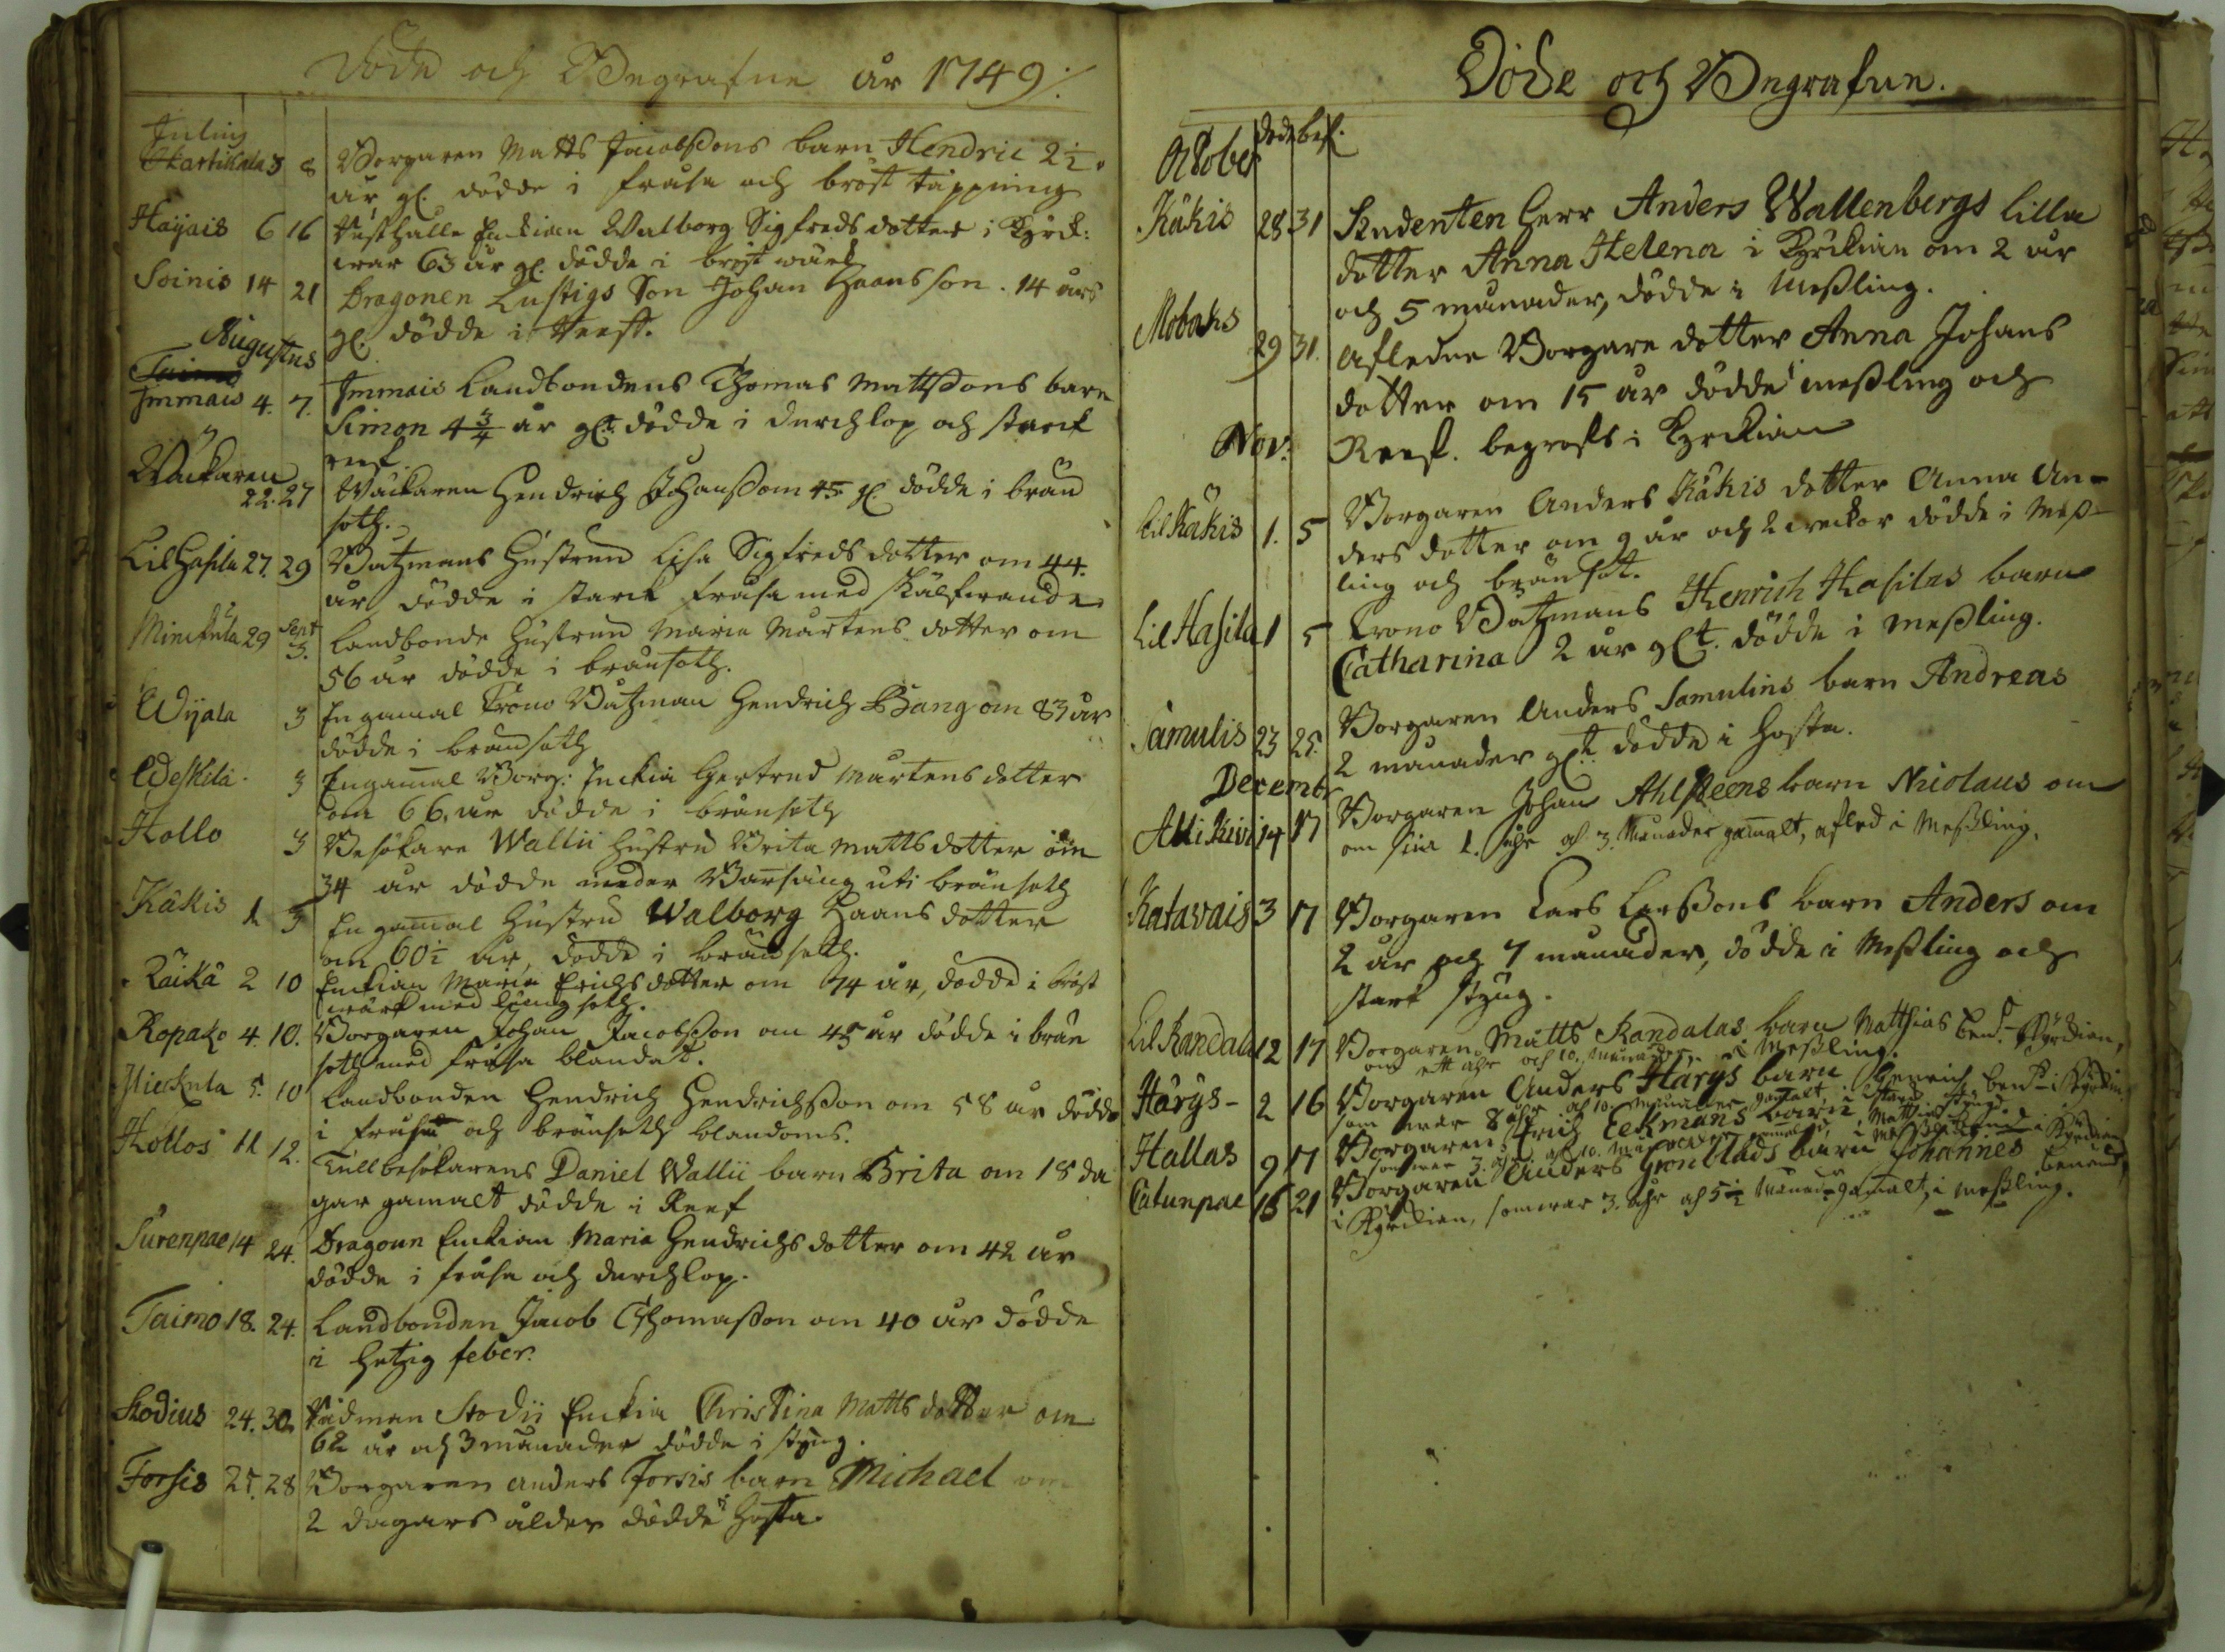 Döde och Begrafne år 1749.
Julius
3 8 Borgaren Matts Jacobssons barn Hendric 2½
år gl. dödde i fråsa och bröst täppning
Häyäis 6 16 Enckian Walborg Sigfreds dotter i Kyrck:
war 63 år gl. dödde i bröst wärk
Soinis 14 21 Dragonen Lustigs Son Johan Haansson. 14 års
gl. dödde i
Augustus
Taimo
Immais 4. 7. Immais Landbondens Thomas Mattssons barn
Simon 4¾ år glt. dödde i durchlop och starck
reef.
Wäckaren
22. 27 Wäckaren Hendrich Johansson 45 gl. dödde i brän
soth.
Lill Hasila 27. 29 Båtzmans Hustrun Lisa Sigfreds dotter om 44.
år dödde i starck fråsa med
29 Sept 3. Landbonde Hustrun Maria Mårtens dotter om
56 år dödde i brånsoth.
Wijala 3 En gamal Crono Båtzman Hendrich Bang om 83 år
dödde i brånsoth
3 En gamal Borg: Enckia Gertrud Mårtens dotter
om 66. år dödde i brånsoth
Hollo 3 Besökare Wallii Hustru Brita Matts dotter om
34 år dödde under Barnsäng uti brånsoth
Käkis 1 3 En gamal Hustru Walborg Haans dotter
om 60½ år, dödde i brånsoth.
Räikä 2 10 Enckian Maria Erichs dotter om 74 år, dödde i bröst
wärk med lung soth.
Ropako 4. 10. Borgaren Johan Jacobsson om 45 år dödde i brån
soth med fråsa blandat.
Mierkula 5. 10 Landbonden Hendrich Hendrichsson om 58 år dödde
i fråsa och brånsoth blandoms.
Hollos 11 12. Tullbesökarens Daniel Wallii barn Brita om 18 da
gar gamalt dödde i Reef
Surenpae 14 24. Dragoun Enckian Maria Hendrichs dotter om 42 år
dödde i fråsa och durchlop.
Taimo 18. 24. Landbonden Jacob Thomasson om 40 år dödde
i Hetzig feber.
Stodius 24. 30 Rådman Stodii Enckia Christina Matts dotter om
62 år och 3 månader dödde i styng.
Forsis 25. 28 Borgaren Anders Forsis barn Michael om
2 dagars ålder dödde i Hosta.
Döde och Begrafne.
döde bef.
October
Käkis 28 31 Studenten Herr Anders Wallenbergs lilla
dotter Anna Helena i Kyrckian om 2 år
och 5 månader, dödde i Messling.
Mobaks 29 31. Afledne Borgare dotter Anna Johans
dotter om 15 år dödde i messling och
Nov: Reef. begrofs i Kyrckian
Lil Käkis 1. 5 Borgaren Anders Käkis dotter Anna An-
ders dotter om 9 år och 2 weckor dödde i Mess-
ling och brånsot.
Lil Hasila 1 5 Crono Båtzmans Henrich Hasilas barn
Catharina 2 år glt. dödde i messling.
Samulis 23 25. Borgaren Anders Samulins barn Andreas
2 månader glt. dödde i Hosta.
Decembr
Alikivi 14 17 Borgaren Johan Ahlsteens barn Nicolaus om
om sina 1. åhr och 3. Månader gamalt, afled i Messling.
Katavais 3 17 Borgaren Lars Larssons barn Anders om
2 år och 7 månader, dödde i Messling och
stark styng.
Lil Kandala 12 17 Borgaren Matts Kandalas barn Matthias i Kyrckian,
om ett åhr och 10. Månader, i Messling.
Härys- 2 16 Borgaren Anders Härys barn Henrich i Kyrckian
som war 8 åhr och 10. Månader gamalt, i
Hallas 9 17 Borgaren Erich Eekmans barn Matthias i Kyrckian
som war 3. åhr och 10. Månader gamalt, i Messling.
Catunpae 16 21 Borgaren Anders Grönblads barn Johannes
i Kyrckian, som war 3. åhr och 5½ Månader gamalt, i messling.